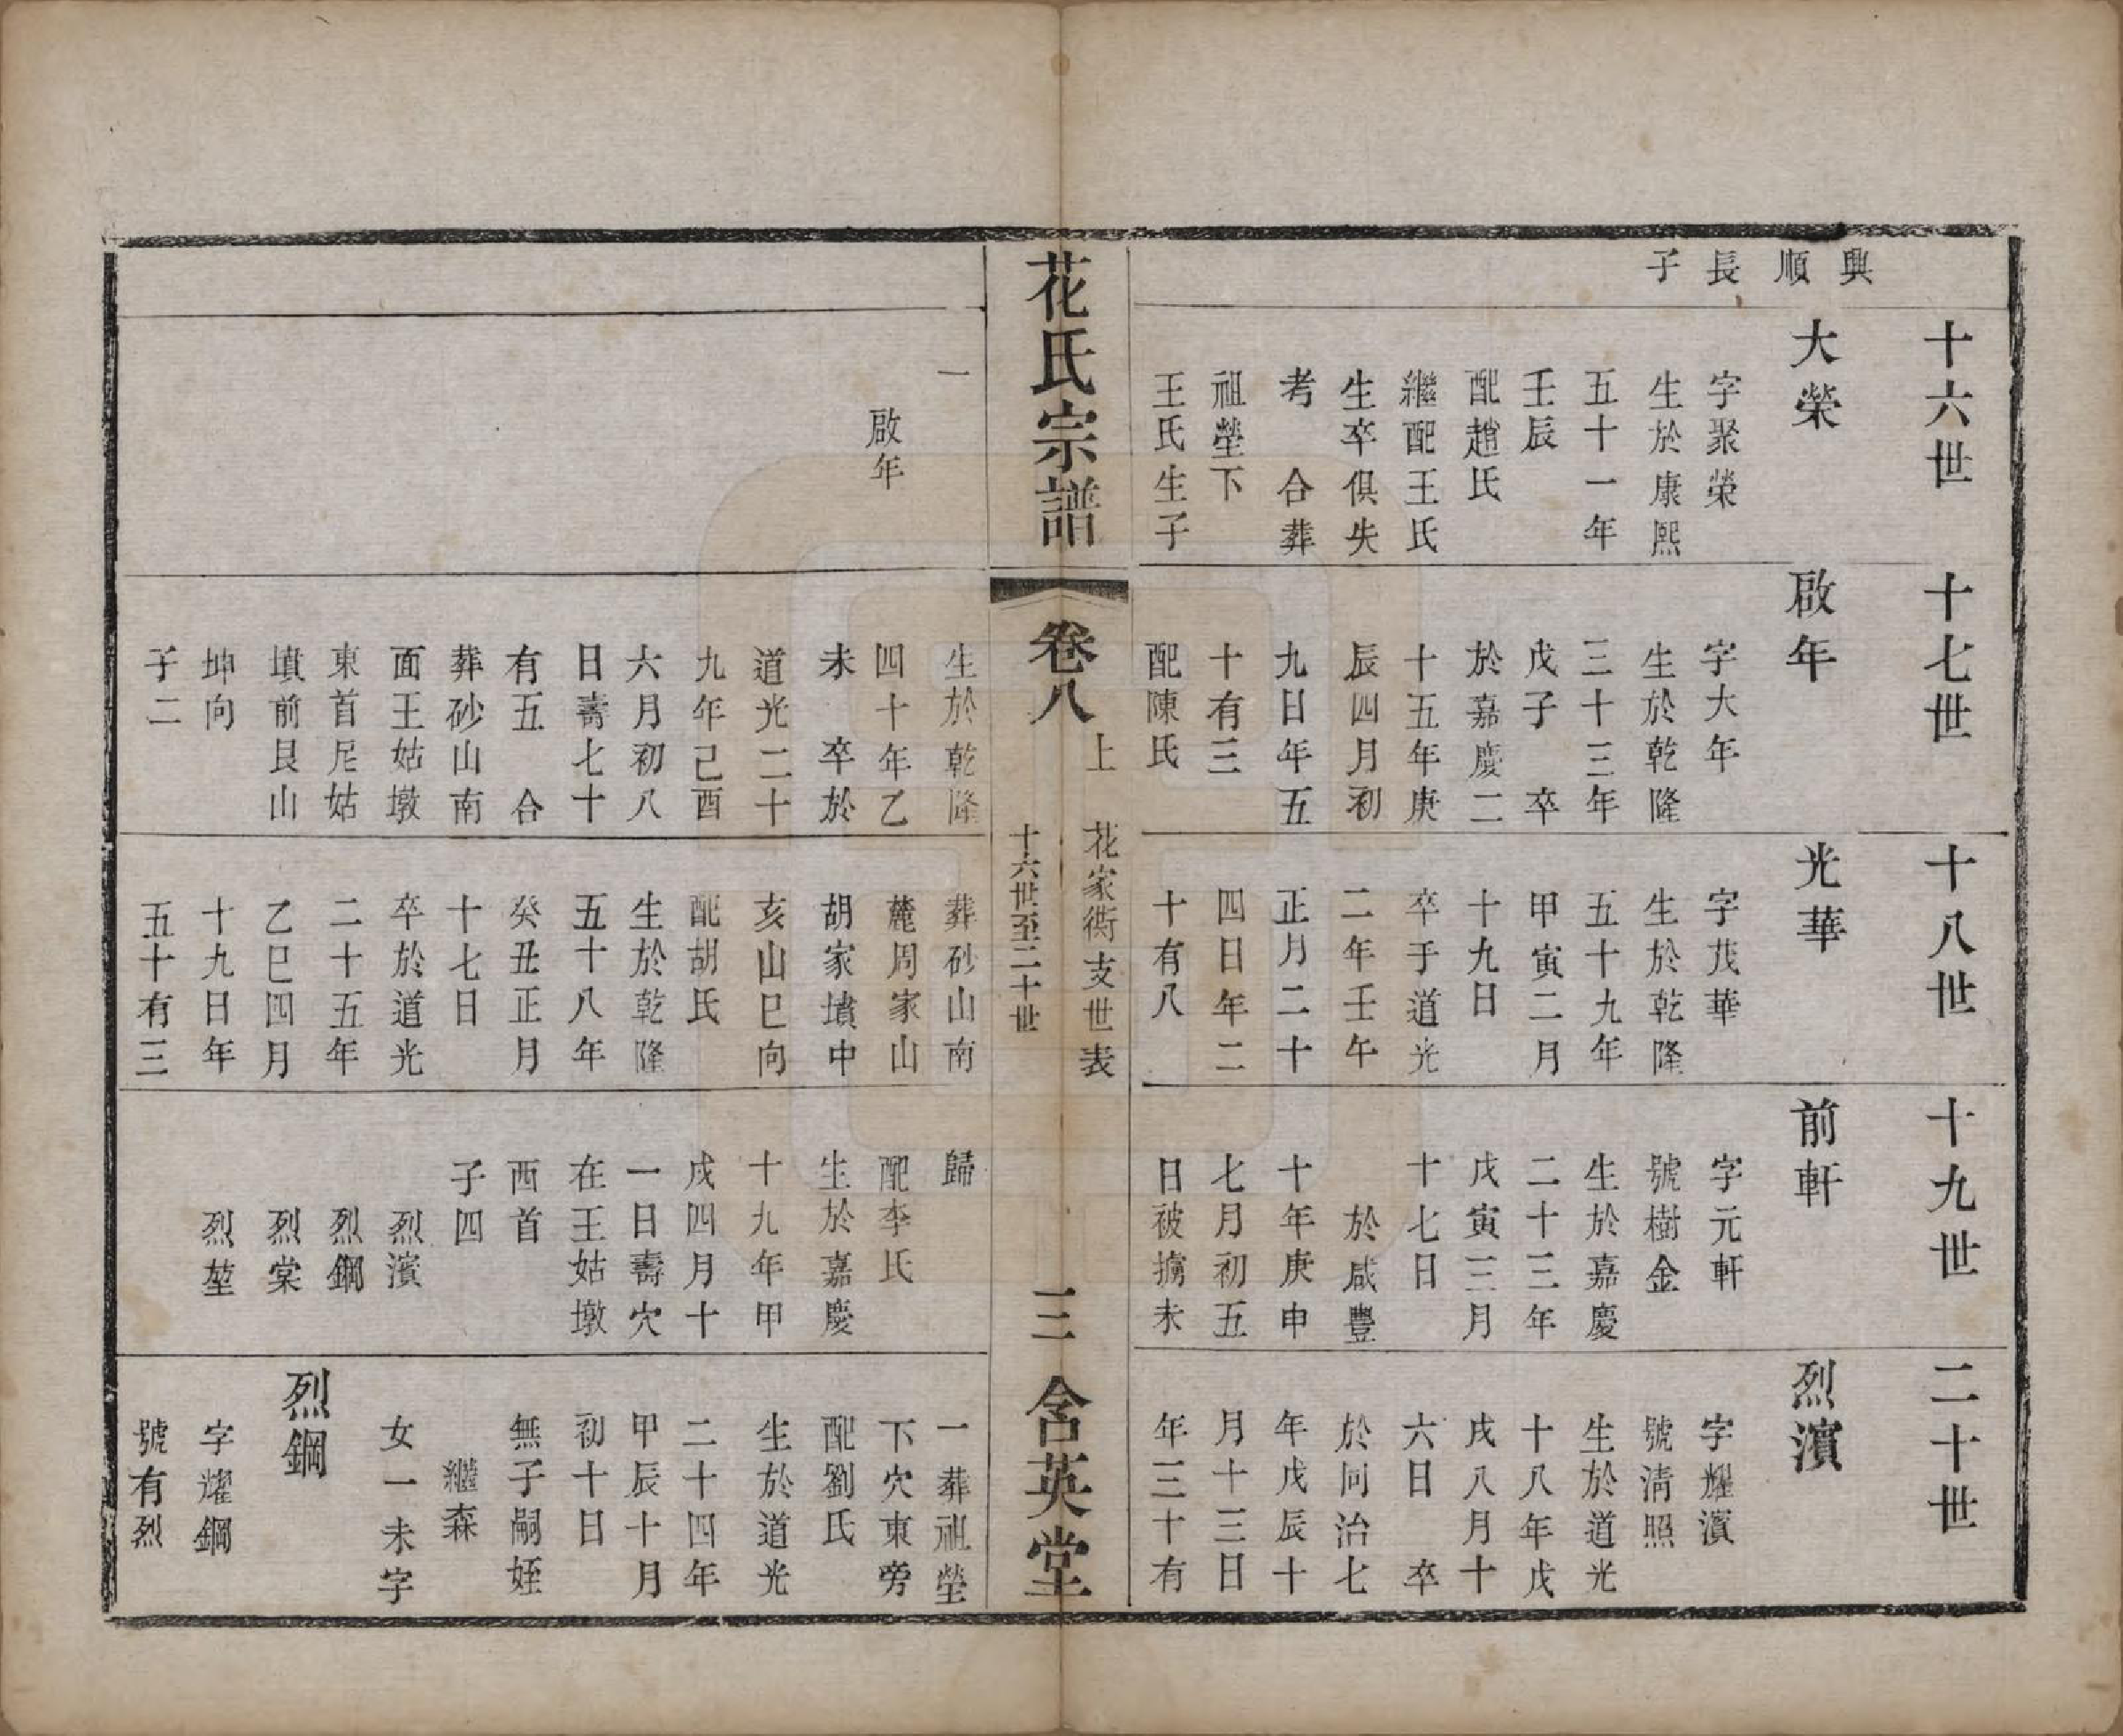 興
順
長
子
十六世
大榮
字聚榮
生於康熙
五十一年
壬辰
配趙氏
繼配王氏
生卒俱失
考 合葬
祖塋下
王氏生子
十七世
啟年
字大年
生於乾隆
三十三年
戊子 卒
於嘉慶二
十五年庚
辰四月初
九日年五
十有三
配陳氏
十八世
光華
字茂華
生於乾隆
五十九年
甲寅二月
十九日
卒于道光
二年壬午
正月二十
四日年二
十有八
十九世
前軒
字元軒
號樹金
生於嘉慶
二十三年
戊寅三月
十七日
於咸豐
十年庚申
七月初五
日被擄未
二十世
烈濱
字耀濱
號清照
生於道光
十八年戊
戌八月十
六日 卒
於同治七
年戊辰十
月十三日
年三十有
花氏宗譜
卷八
上
花家衖支世表
十六世至二十世
三
含英堂
一
啟年
生於乾隆
四十年乙
未 卒於
道光二十
九年己酉
六月初八
日壽七十
有五 合
葬砂山南
面王姑墩
東首尼姑
墳前艮山
坤向
子二
葬砂山南
麓周家山
胡家墳中
亥山巳向
配胡氏
生於乾隆
五十八年
癸丑正月
十七日
卒於道光
二十五年
乙巳四月
十九日年
五十有三
歸
配李氏
生於嘉慶
十九年甲
戌四月十
一日壽穴
在王姑墩
西首
子四
烈濱
烈鋼
烈棠
烈堃
一葬祖塋
下穴東旁
配劉氏
生於道光
二十四年
甲辰十月
初十日
無子嗣姪
繼森
女一未字
烈鋼
字耀鋼
號有烈